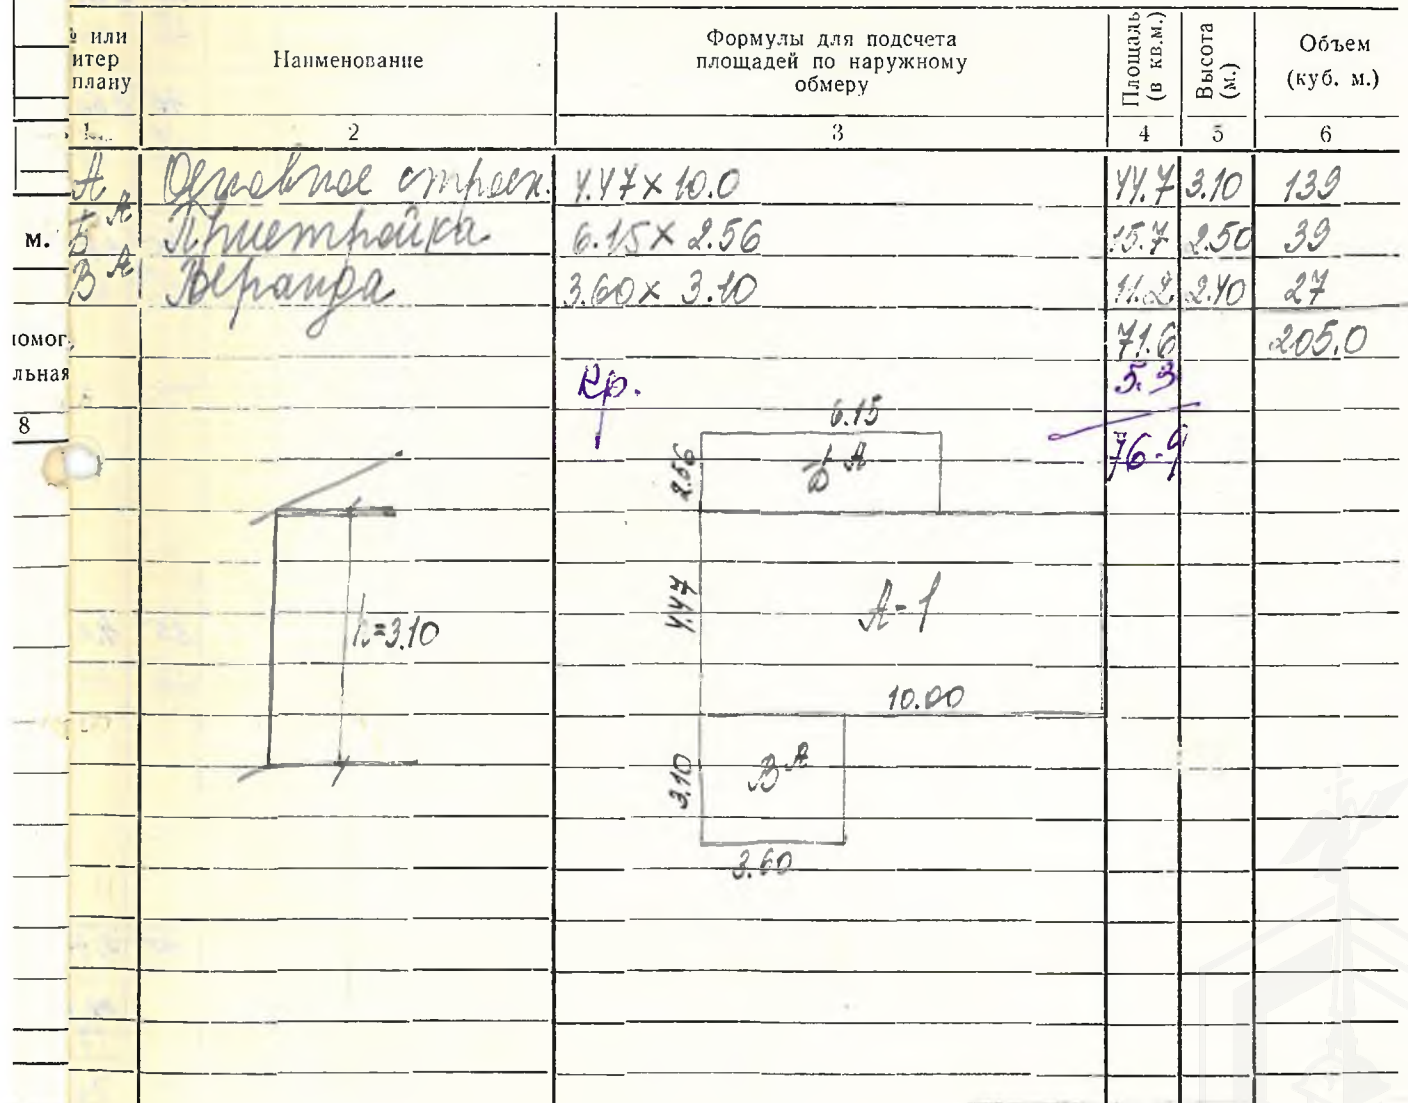 № или
итер
плану
Наименование
Формулы для подсчета
площадей по наружному
обмеру
Площадь
(в кв.м.)
Высота
(м.)
Объем
(куб. м.)
1 2 3 4 5 6
А Основное строен. 4.47 x 10.0 44.7 3.10 139
Б А Пристройка 6.15 x 2.56 15.7 2.50 39
В А Веранда 3.60 x 3.10 11.2 2.40 27
71.6 205.0
Кр. 5.3
76.9
м.
помог.
льная
8
6.15
2.56
Б А
h=3.10
4.47
А-1
10.00
3.10
В А
3.60